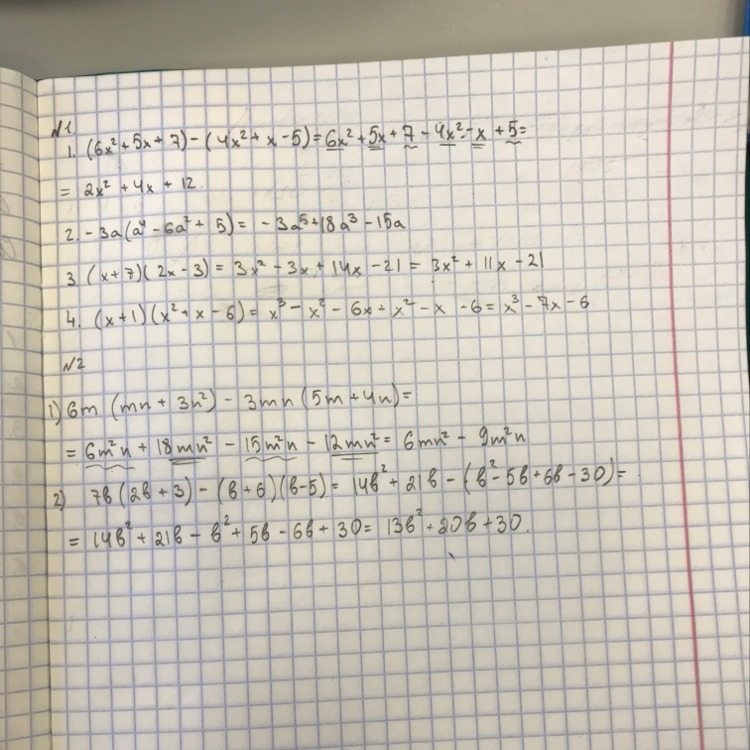 №1.
1. (6x² + 5x + 7) - (4x² + x - 5) = 6x² + 5x + 7 - 4x² - x + 5 =
= 2x² + 4x + 12.
2. -3a(a⁴ - 6a² + 5) = -3a⁵ + 18a³ - 15a
3. (x + 7)(2x - 3) = 3x² - 3x + 14x - 21 = 3x² + 11x - 21
4. (x + 1)(x² + x - 6) = x³ - x² - 6x + x² - x - 6 = x³ - 7x - 6
№2
1) 6m (mn + 3n²) - 3mn (5m + 4n) =
= 6m²n + 18mn² - 15m²n - 12mn² = 6mn² - 9m²n
2) 7b(2b + 3) - (b + 6)(b - 5) = 14b² + 21b - (b² - 5b + 6b - 30) =
= 14b² + 21b - b² + 5b - 6b + 30 = 13b² + 20b + 30.